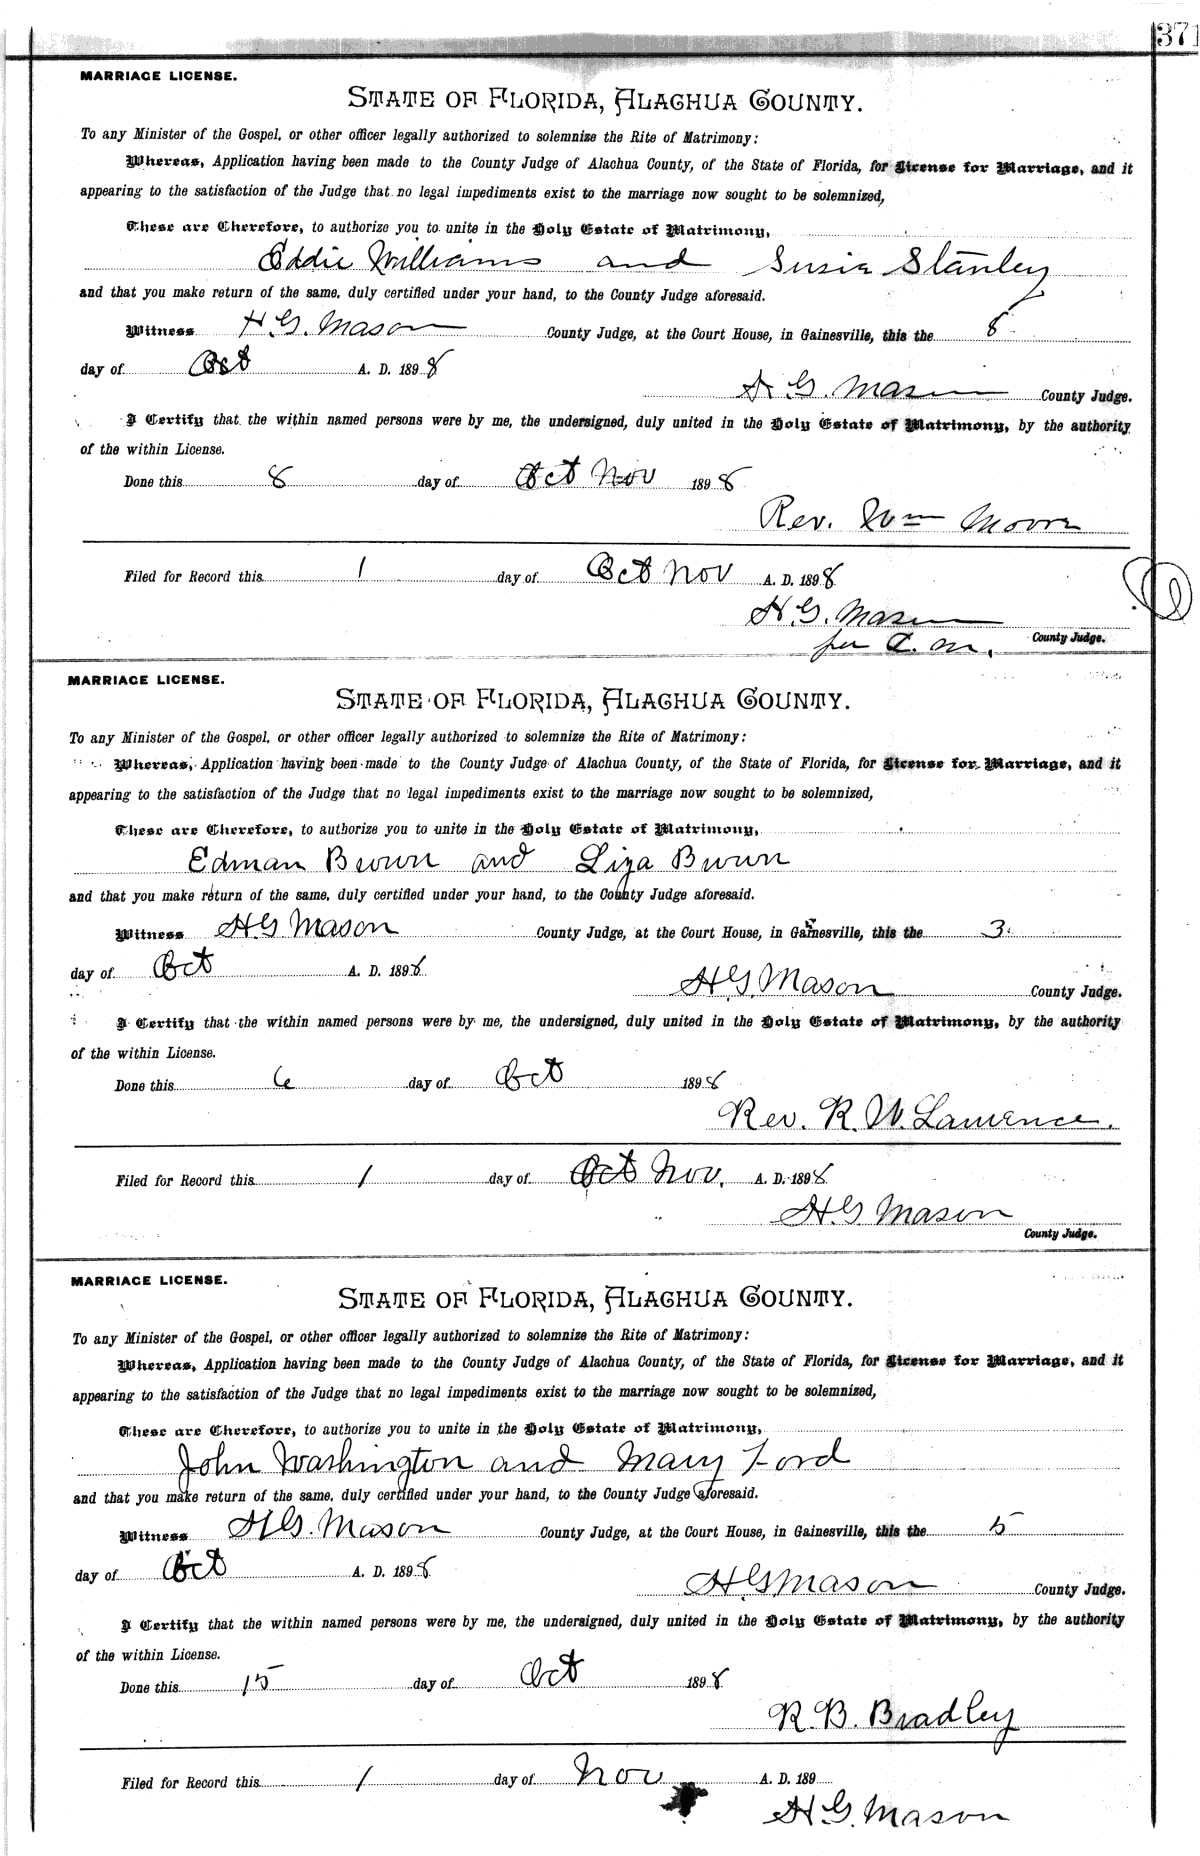 371
MARRIAGE LICENSE.
STATE OF FLORIDA, ALACHUA COUNTY.
To any Minister of the Gospel, or other officer legally authorized to solemnize the Rite of Matrimony:
Whereas, Application having been made to the County Judge of Alachua County, of the State of Florida, for License for Marriage, and it
appearing to the satisfaction of the Judge that no legal impediments exist to the marriage now sought to be solemnized,
These are Therefore, to authorize you to unite in the Holy Estate of Matrimony,
Eddie Williams and Susie Stanley
and that you make return of the same, duly certified under your hand, to the County Judge aforesaid.
Witness H. G. Mason County Judge, at the Court House, in Gainesville, this the 8
day of Oct A. D. 1898
H G. Mason County Judge.
I Certify that the within named persons were by me, the undersigned, duly united in the Holy Estate of Matrimony, by the authority
of the within License.
Done this 8 day of Oct Nov 1898
Rev. Wm Moore
Filed for Record this 1 day of Oct Nov A. D. 1898
H. G. Mason
per C. M. County Judge.
MARRIAGE LICENSE.
STATE OF FLORIDA, ALACHUA COUNTY.
To any Minister of the Gospel, or other officer legally authorized to solemnize the Rite of Matrimony:
Whereas, Application having been made to the County Judge of Alachua County, of the State of Florida, for License for Marriage, and it
appearing to the satisfaction of the Judge that no legal impediments exist to the marriage now sought to be solemnized,
These are Therefore, to authorize you to unite in the Holy Estate of Matrimony,
Edman Brown and Liza Brown
and that you make return of the same, duly certified under your hand, to the County Judge aforesaid.
Witness H G Mason County Judge, at the Court House, in Gainesville, this the 3
day of Oct A. D. 1898
H G. Mason County Judge.
I Certify that the within named persons were by me, the undersigned, duly united in the Holy Estate of Matrimony, by the authority
of the within License.
Done this 6 day of Oct 1898
Rev. R. W. Lawrence.
Filed for Record this 1 day of Oct Nov. A. D. 1898
H. G Mason
County Judge.
MARRIAGE LICENSE.
STATE OF FLORIDA, ALACHUA COUNTY.
To any Minister of the Gospel, or other officer legally authorized to solemnize the Rite of Matrimony:
Whereas, Application having been made to the County Judge of Alachua County, of the State of Florida, for License for Marriage, and it
appearing to the satisfaction of the Judge that no legal impediments exist to the marriage now sought to be solemnized,
These are Therefore, to authorize you to unite in the Holy Estate of Matrimony,
John Washington and Mary Ford
and that you make return of the same, duly certified under your hand, to the County Judge aforesaid.
Witness H G. Mason County Judge, at the Court House, in Gainesville, this the 15
day of Oct A. D. 1898
H G Mason County Judge.
I Certify that the within named persons were by me, the undersigned, duly united in the Holy Estate of Matrimony, by the authority
of the within License.
Done this 15 day of Oct 1898
R. B. Bradley
Filed for Record this 1 day of Nov A. D. 189
H G. Mason